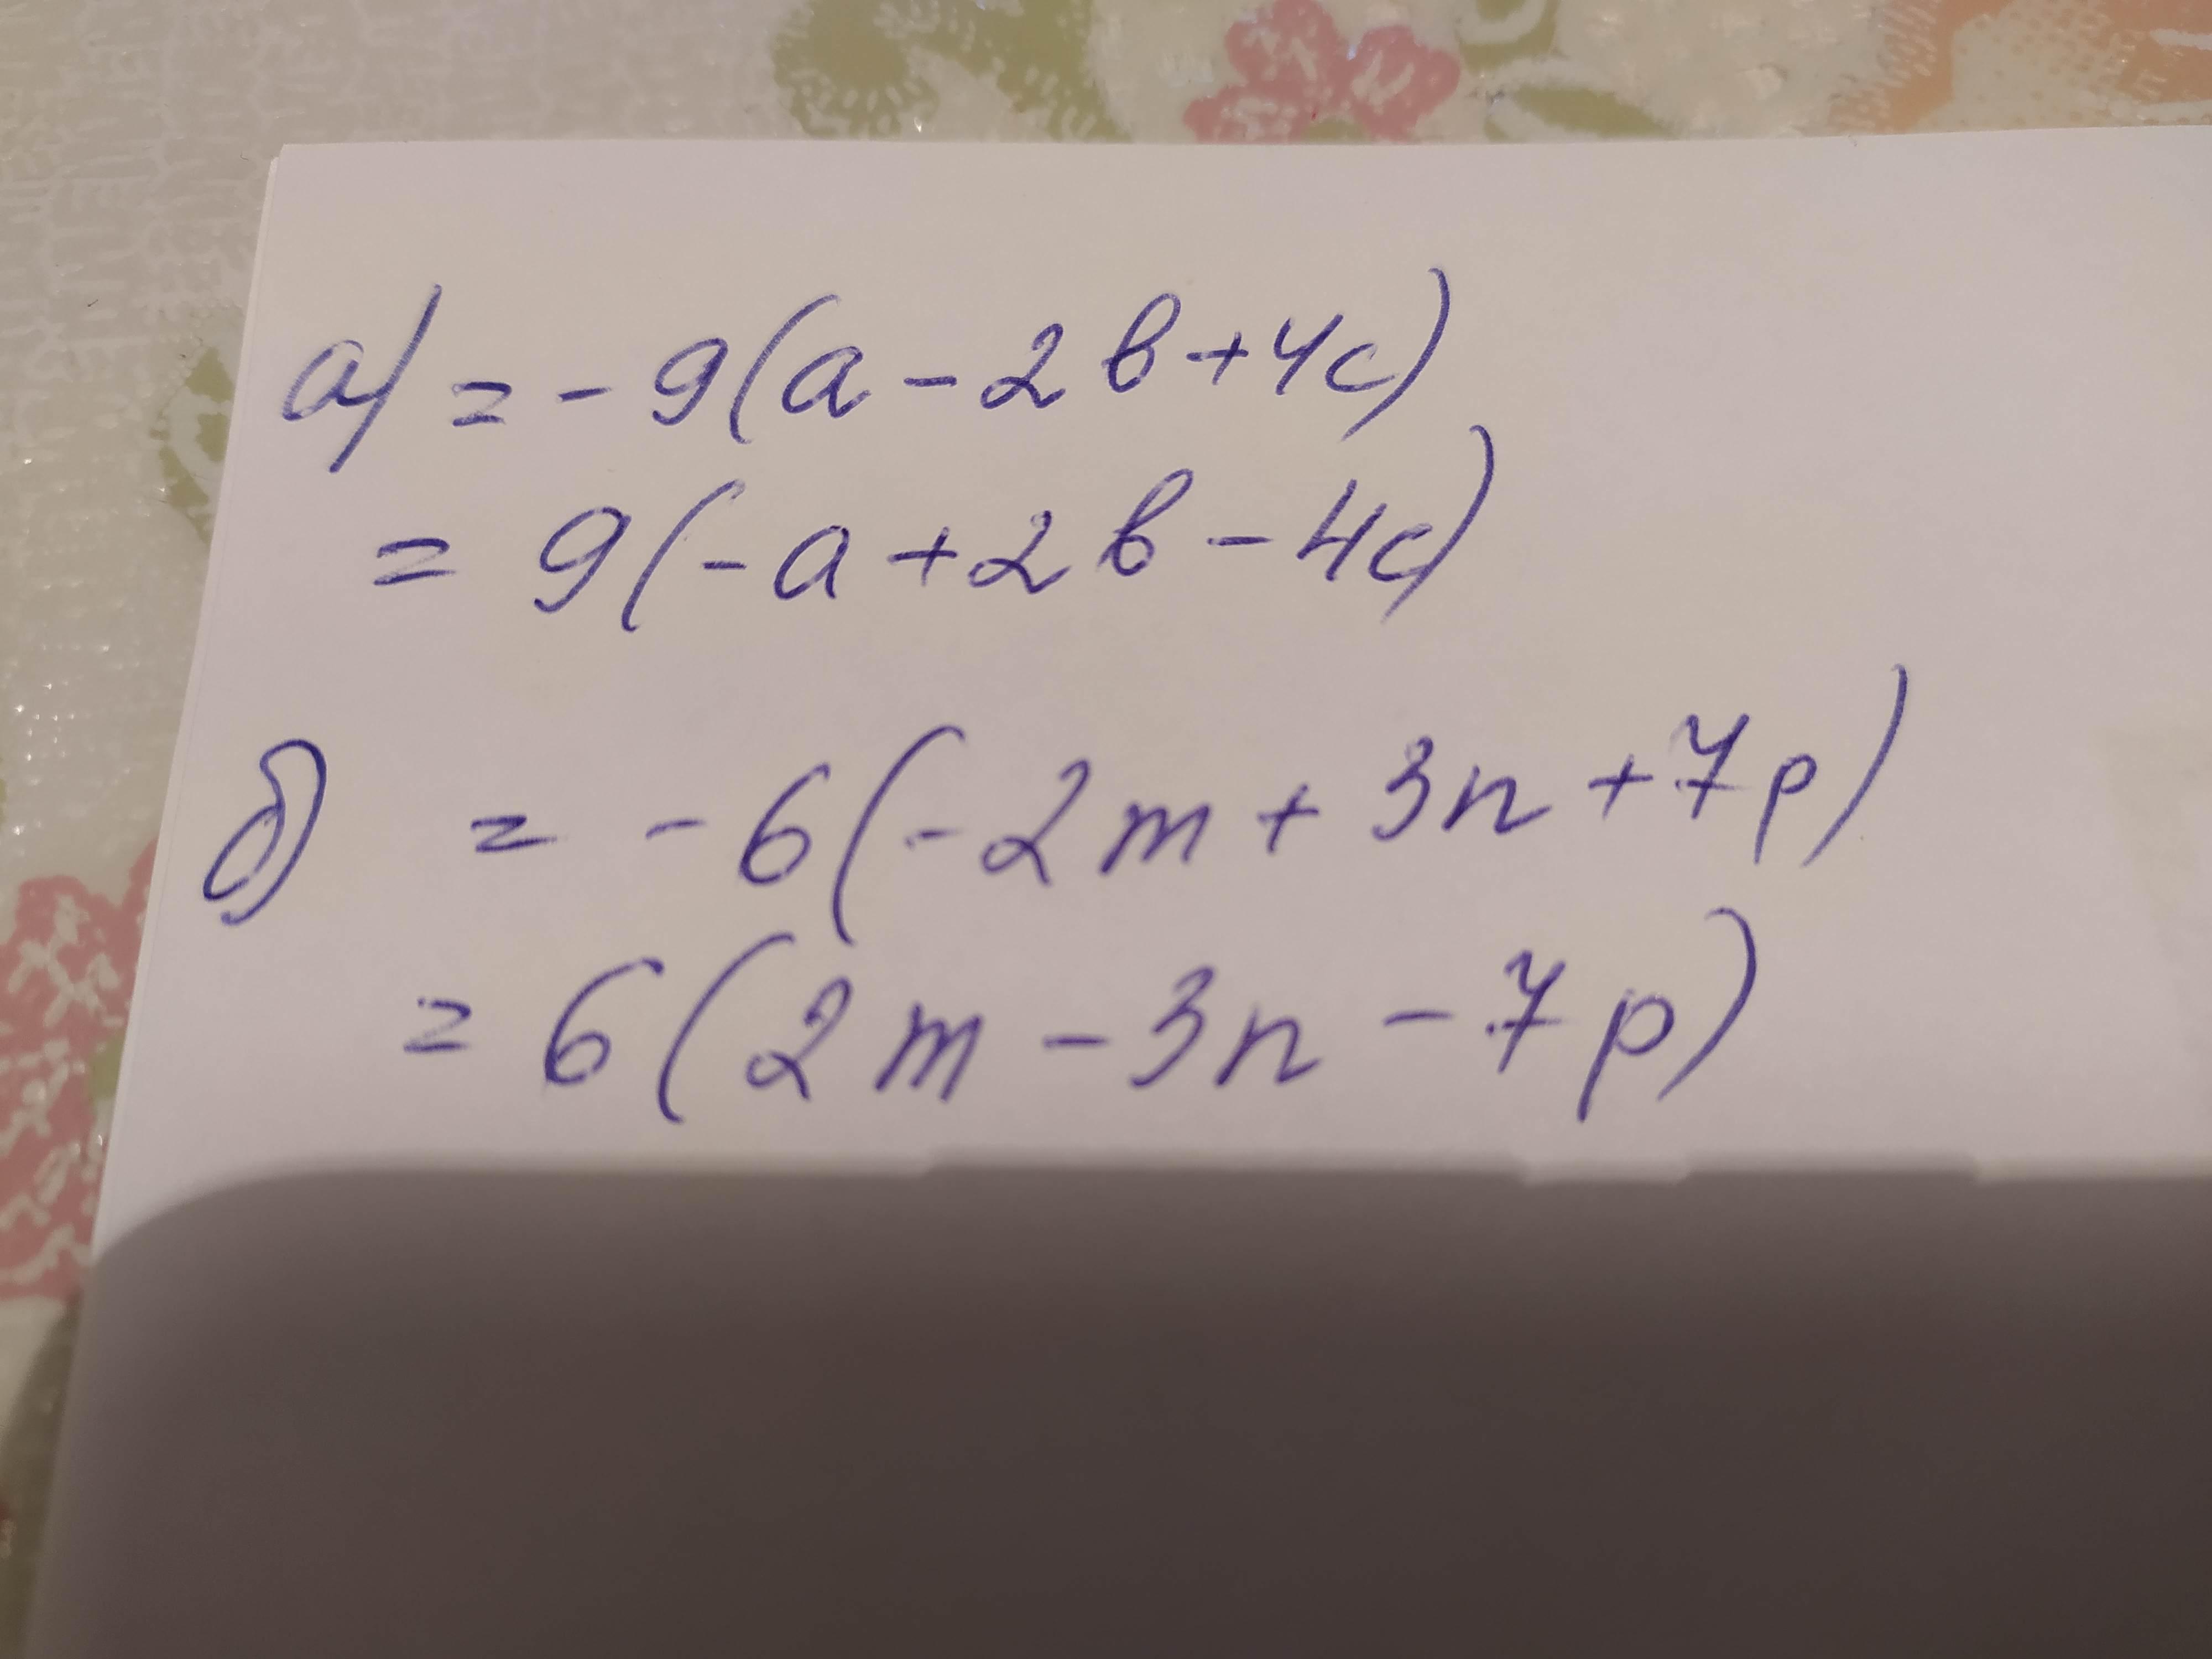 а) = - 9(a - 2b + 4c)
= 9(-a + 2b - 4c)
б) = - 6(-2m + 3n + 7p)
= 6(2m - 3n - 7p)